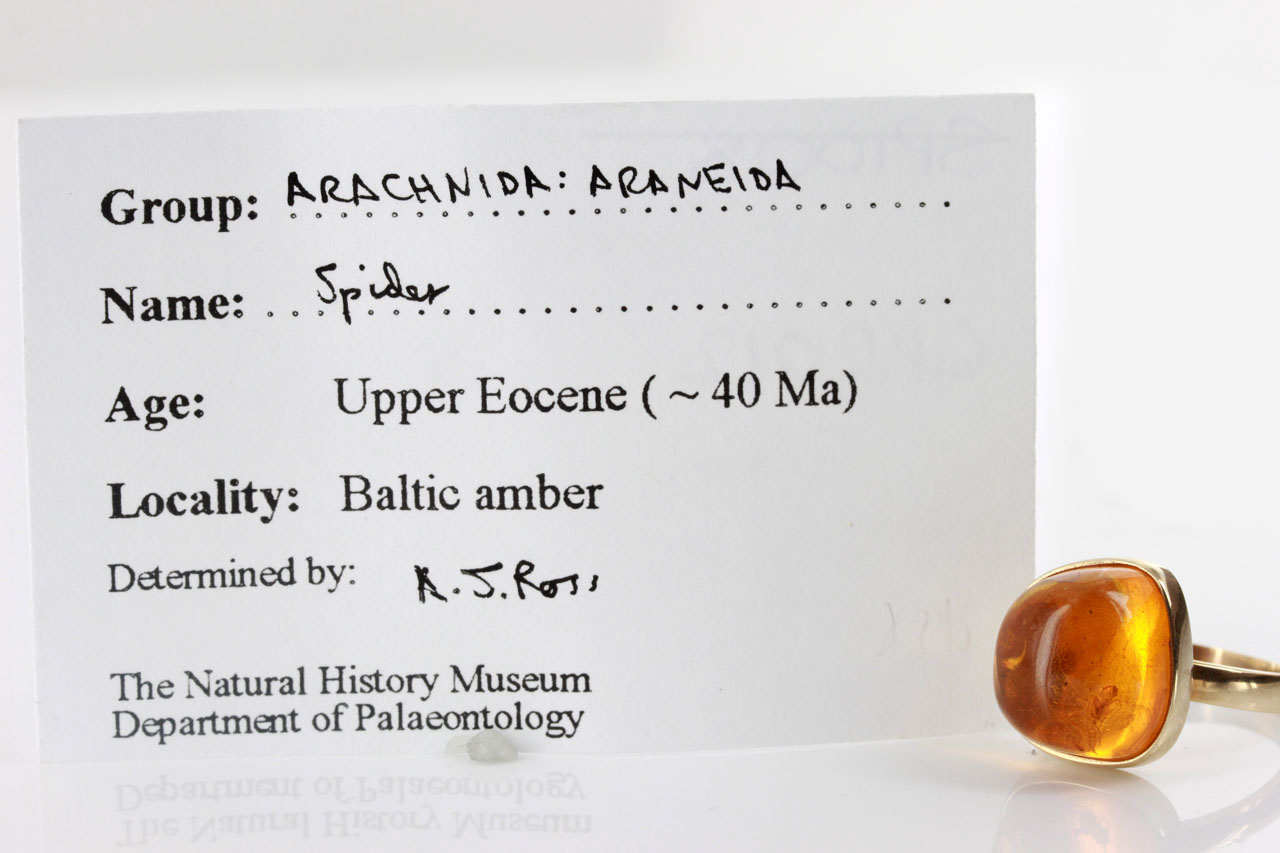 Group: ARACHNIDA: ARANEIDA
Name: Spider
Age: Upper Eocene ( ~ 40 Ma)
Locality: Baltic amber
Determined by: A.J.Ross
The Natural History Museum
Department of Palaeontology